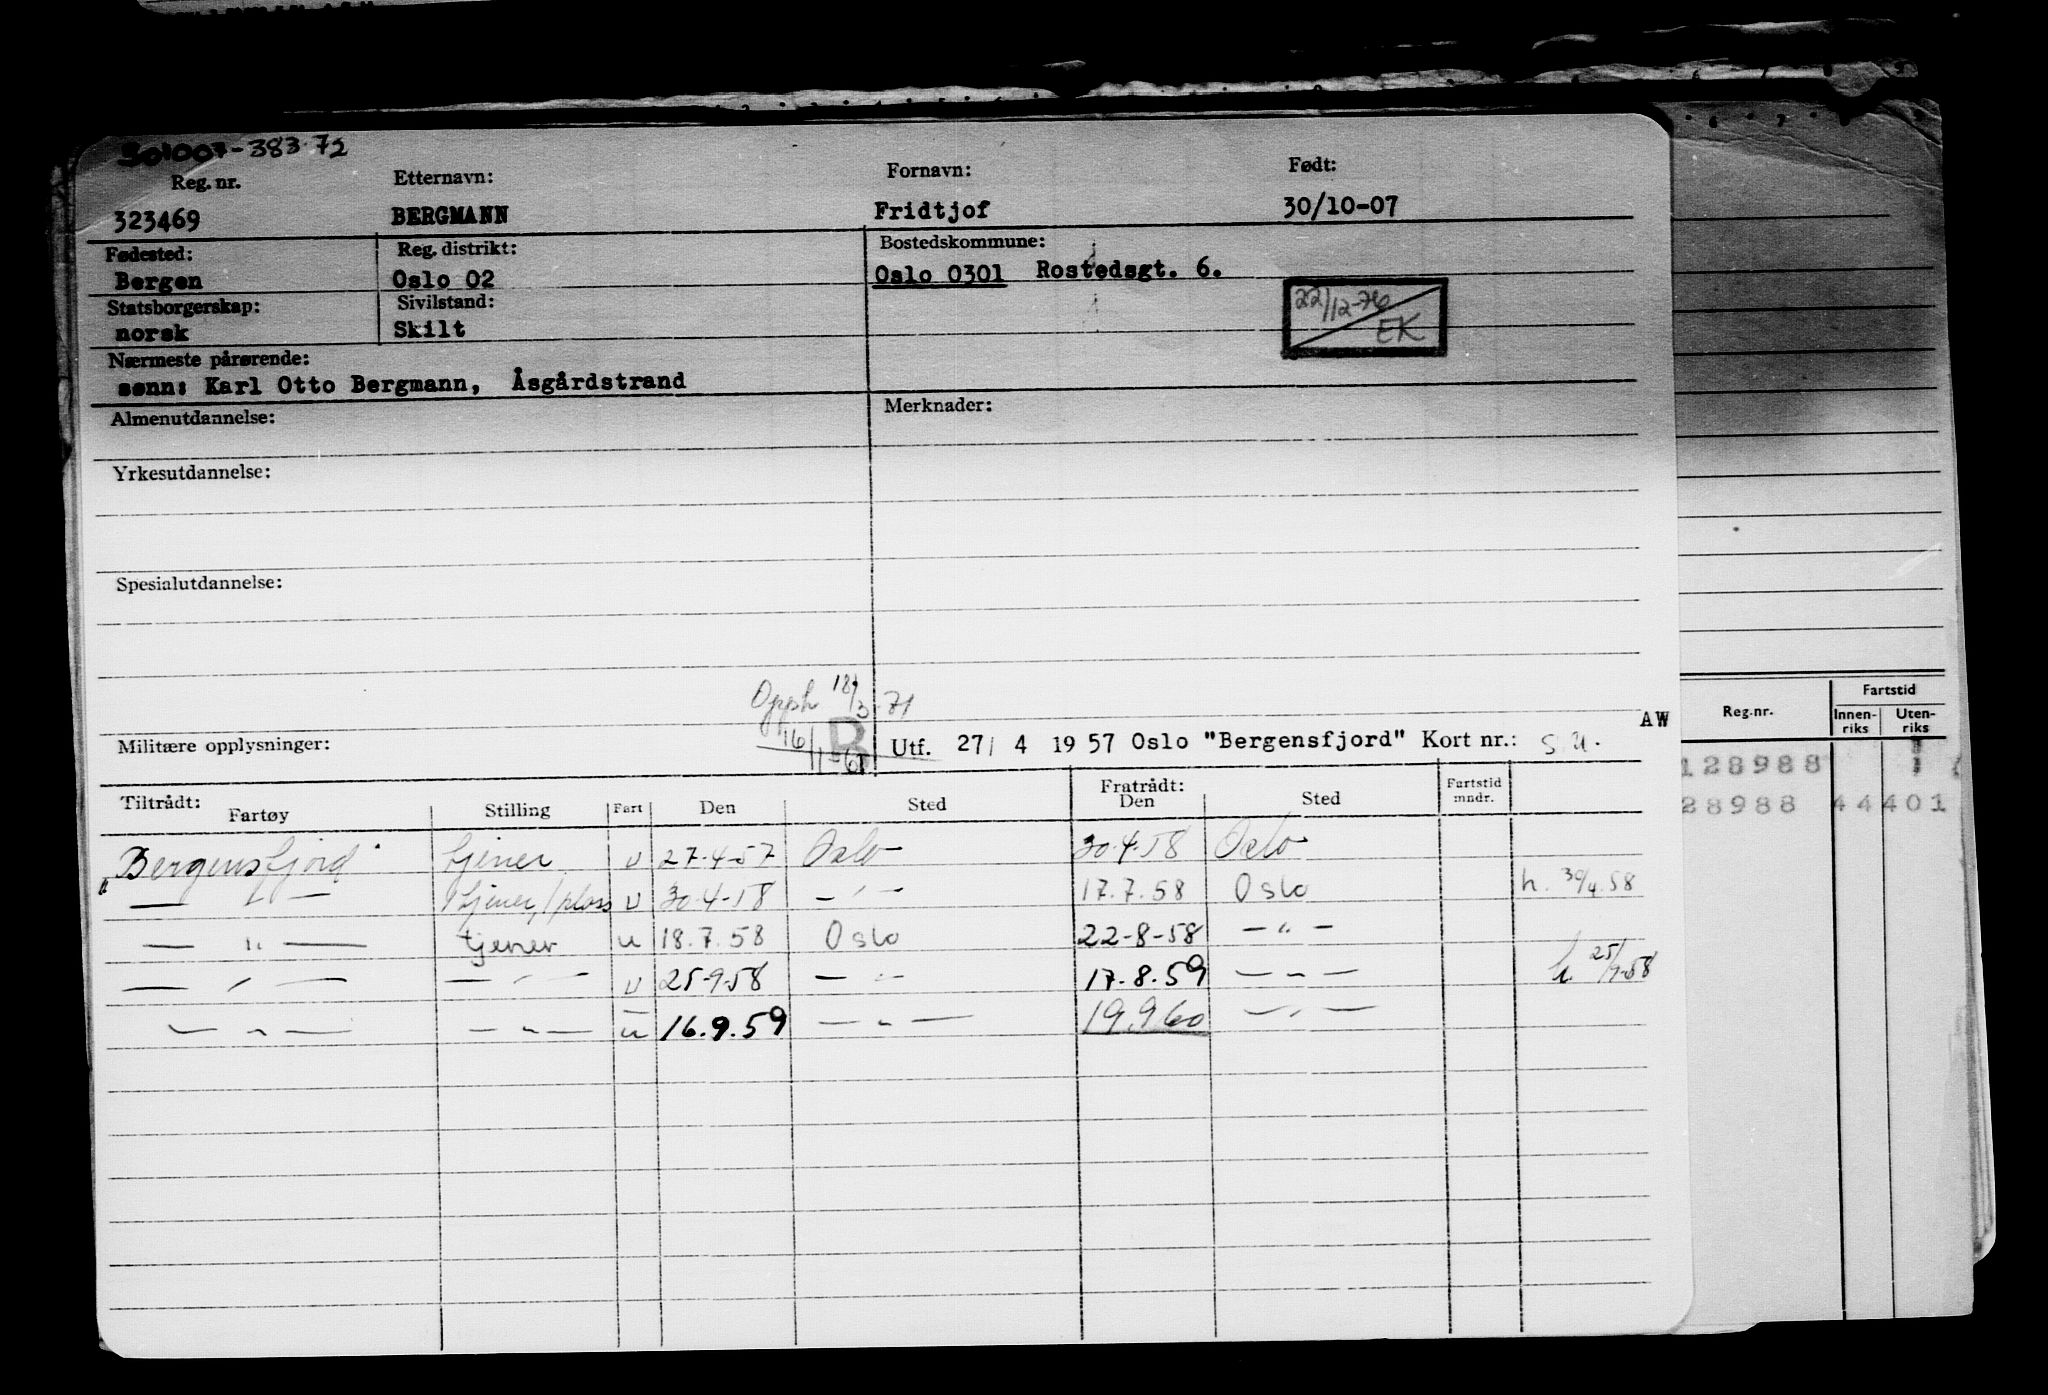 301007-383 72
Reg. nr. Etternavn: Fornavn: Født:
323469 BERGMANN Fridtjof 30/10-07
Fødested: Reg. distrikt: Bostedskommune:
Bergen Oslo 02 Oslo 0301 Rostedsgt. 6.
Statsborgerskap: Sivilstand: 22/12-76
norsk Skilt EK
Nærmeste pårørende:
sønn: Karl Otto Bergmann, Åsgårdstrand
Almenutdannelse: Merknader:
Yrkesutdannelse:
Spesialutdannelse:
Opph 18/3-71
16/1-61 B
Militære opplysninger: Utf. 27/ 4 1957 Oslo "Bergensfjord" Kort nr.: S.U. AW
Tiltrådt: Fratrådt:
Fartøy Stilling Fart Den Sted Den Sted Fartstid mndr.
"Bergensfjord" tjener u 27-4-57 Oslo 30-4-58 Oslo
— " — tjener/plass u 30-4-58 — " — 17.7.58 Oslo h. 30/4.58
— " — tjener u 18.7.58 Oslo 22-8-58 — " —
— " — — " — u 25-9-58 — " — 17.8.59 — " — h 25/9-58
— " — — " — u 16.9.59 — " — 19.9.60 — " —
Reg.nr. Fartstid
Innen-riks Uten-riks
128988 1
28988 44 401